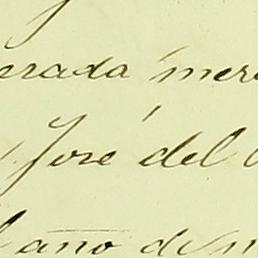 erada mer
José del
año de m